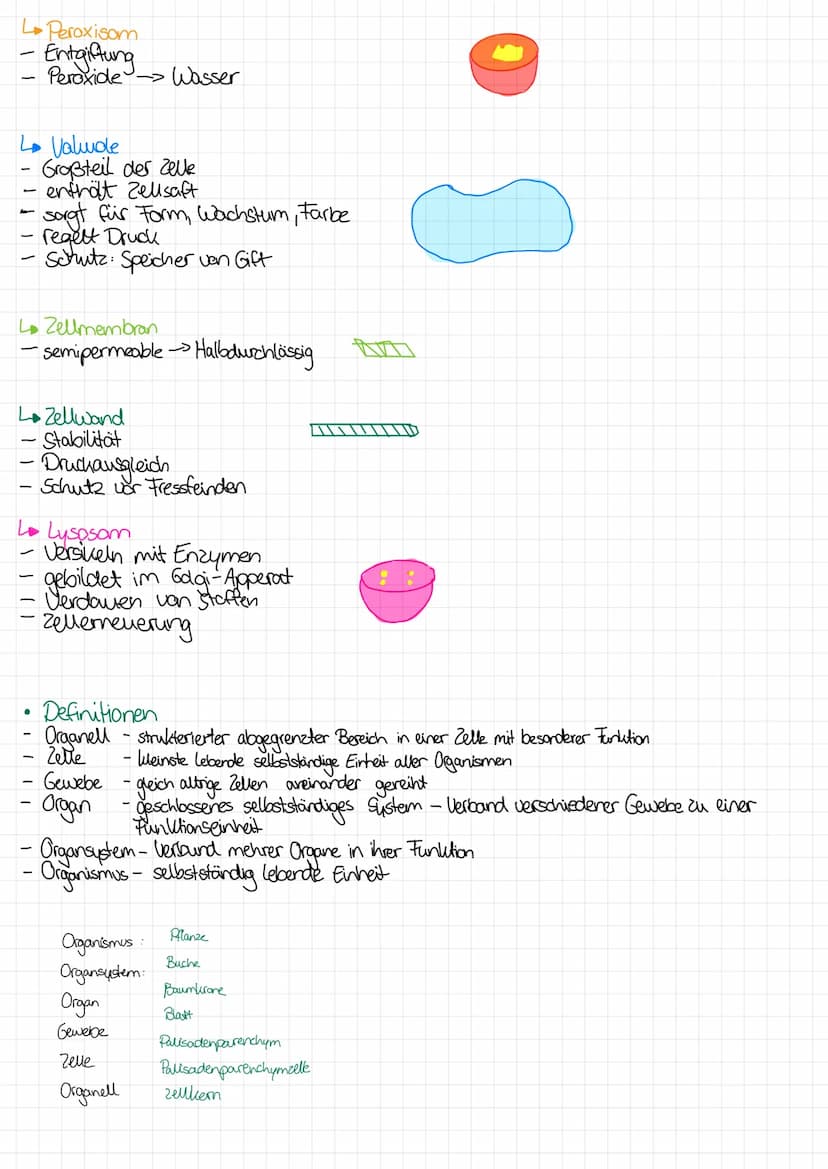 Peroxisom
- Entgiftung
- Peroxide -> Wasser
Vakuole
- Großteil der Zelle
- enthält Zellsaft
- sorgt für Form, Wachstum, Farbe
- regelt Druck
- Schutz: Speicher von Gift
Zellmembran
- semipermeable -> Halbdurchlässig
Zellwand
- Stabilität
- Druckausgleich
- Schutz vor Fressfeinden
Lysosom
- Versikeln mit Enzymen
- gebildet im Golgi-Apperat
- Verdauen von Stoffen
- Zellerneuerung
• Definitionen
- Organell - strukterierter abgegrenzter Bereich in einer Zelle mit besonderer Funktion
- Zelle - kleinste lebende selbstständige Einheit aller Organismen
- Gewebe - gleich altrige Zellen aneinander gereiht
- Organ - geschlossenes selbstständiges System - Verband verschiedener Gewebe zu einer
Funktionseinheit
- Organsystem - Verbund mehrer Organe in ihrer Funktion
- Organismus - selbstständig lebende Einheit
Organismus : Pflanze
Organsystem: Buche
Baumkrone
Organ Blatt
Gewebe Palisadenparenchym
Zelle Palisadenparenchymzelle
Organell Zellkern